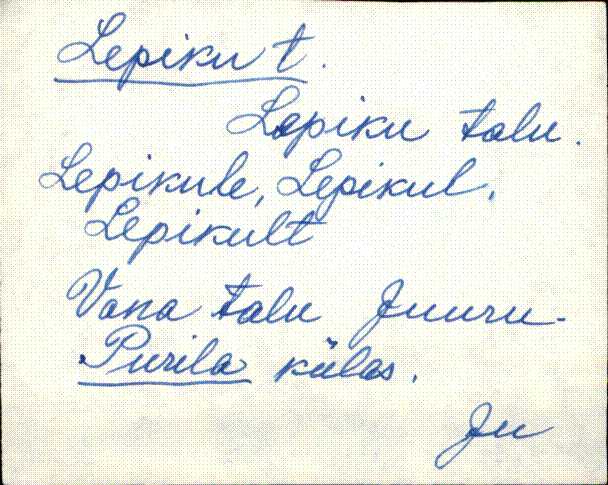 Lepiku t.
Lepiku talu.
Lepikule, Lepikul,
Lepikult
Vana talu Juuru-
Purila külas.
Ju